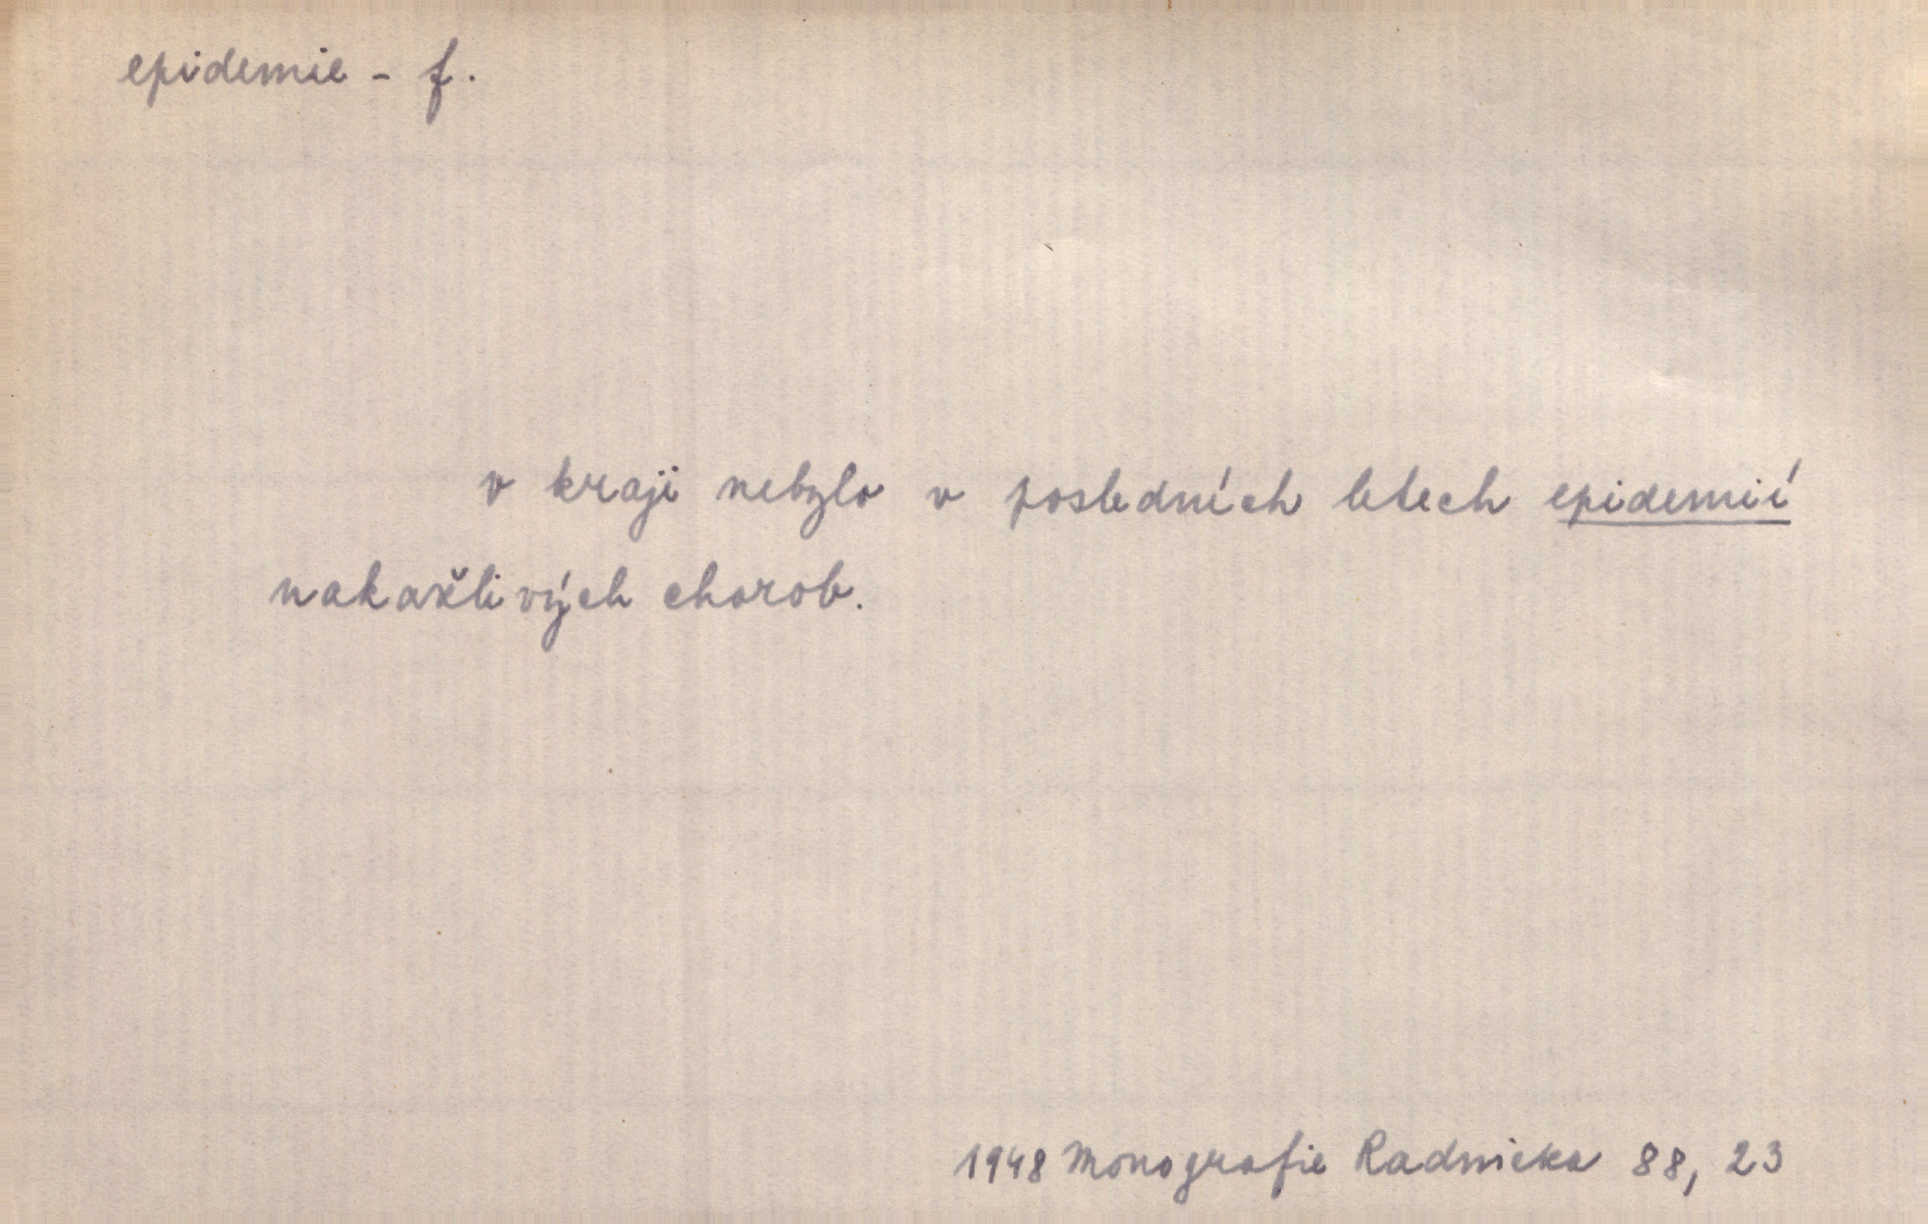 epidemie - f.
v kraji nebylo v posledních letech epidemií
nakažlivých chorob.
1948 Monografie Radnicka 88, 23